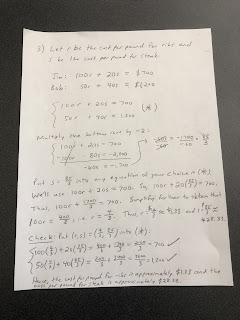 3) Let r be the cost per pound for ribs and
s be the cost per pound for steak.
Jim: 100r + 20s = $700
Bob: 50r + 40s = $1200
{ 100r + 20s = 700
50r + 40s = 1200 (*)
Multiply the bottom row by -2:
{ 100r + 20s = 700
-100r - 80s = -2,400
-60s = -1700
→ -60s/-60 = -1700/-60 = 85/3
Put s = 85/3 into any equation of your choice in (*)
We'll use 100r + 20s = 700. So, 100r + 20(85/3) = 700.
Thus, 100r + 1700/3 = 700. Simplify further to obtain that
100r = 400/3 i.e. r = 4/3. Thus, r = 4/3 ≈ $1.33 and s = 85/3 ≈
$28.33.
Check: Put (r,s) = (4/3, 85/3) into (*):
100(4/3) + 20(85/3) = 400/3 + 1700/3 = 2100/3 = 700 ✓
50(4/3) + 40(85/3) = 200/3 + 3400/3 = 3600/3 = 1200 ✓
Hence, the cost per pound for ribs is approximately $1.33 and the
cost per pound for steak is approximately $28.33.